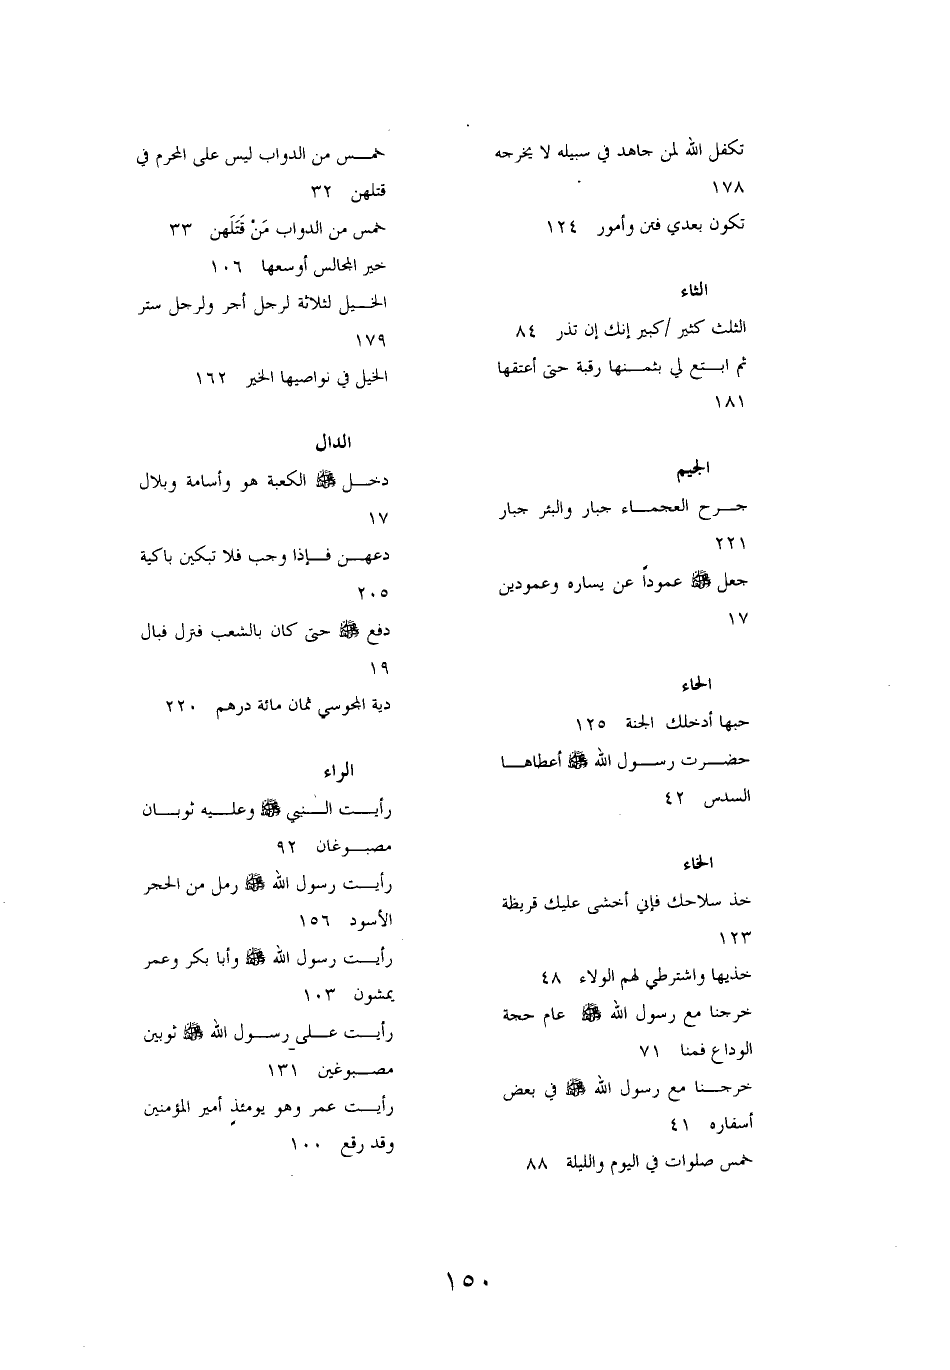 تكفل الله لمن جاهد في سبيله لا يخرجه
١٧٨
تكون بعدي فتن وأمور ١٢٤
الثاء
الثلث كثير /كبير إنك إن تذر ٨٤
ثم ابتع لي بثمنها رقبة حتى أعتقها
١٨١
الجيم
جرح العجماء جبار والبئر جبار
٢٢١
جعل ﷺ عموداً عن يساره وعمودين
١٧
الحاء
حبها أدخلك الجنة ١٢٥
حضرت رسول الله ﷺ أعطاها
السدس ٤٢
الخاء
خذ سلاحك فإني أخشى عليك قريظة
١٢٣
خذيها واشترطي لهم الولاء ٤٨
خرجنا مع رسول الله ﷺ عام حجة
الوداع فمنا ٧١
خرجنا مع رسول الله ﷺ في بعض
أسفاره ٤١
خمس صلوات في اليوم والليلة ٨٨
خمس من الدواب ليس على المحرم في
قتلهن ٣٢
خمس من الدواب مَنْ قَتَلَهن ٣٣
خير المجالس أوسعها ١٠٦
الخيل لثلاثة لرجل أجر ولرجل ستر
١٧٩
الخيل في نواصيها الخير ١٦٢
الدال
دخل ﷺ الكعبة هو وأسامة وبلال
١٧
دعهن فإذا وجب فلا تبكين باكية
٢٠٥
دفع ﷺ حتى كان بالشعب فنزل فبال
١٩
دية المجوسي ثمان مائة درهم ٢٢٠
الراء
رأيت النبي ﷺ وعليه ثوبان
مصبوغان ٩٢
رأيت رسول الله ﷺ رمل من الحجر
الأسود ١٥٦
رأيت رسول الله ﷺ وأبا بكر وعمر
يمشون ١٠٣
رأيت على رسول الله ﷺ ثوبين
مصبوغين ١٣١
رأيت عمر وهو يومئذٍ أمير المؤمنين
وقد رقع ١٠٠
١٥٠